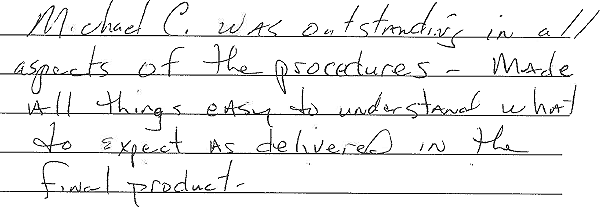 Michael C. was outstanding in all
aspects of the procedures - Made
All things easy to understand what
to Expect as delivered in the
final product-